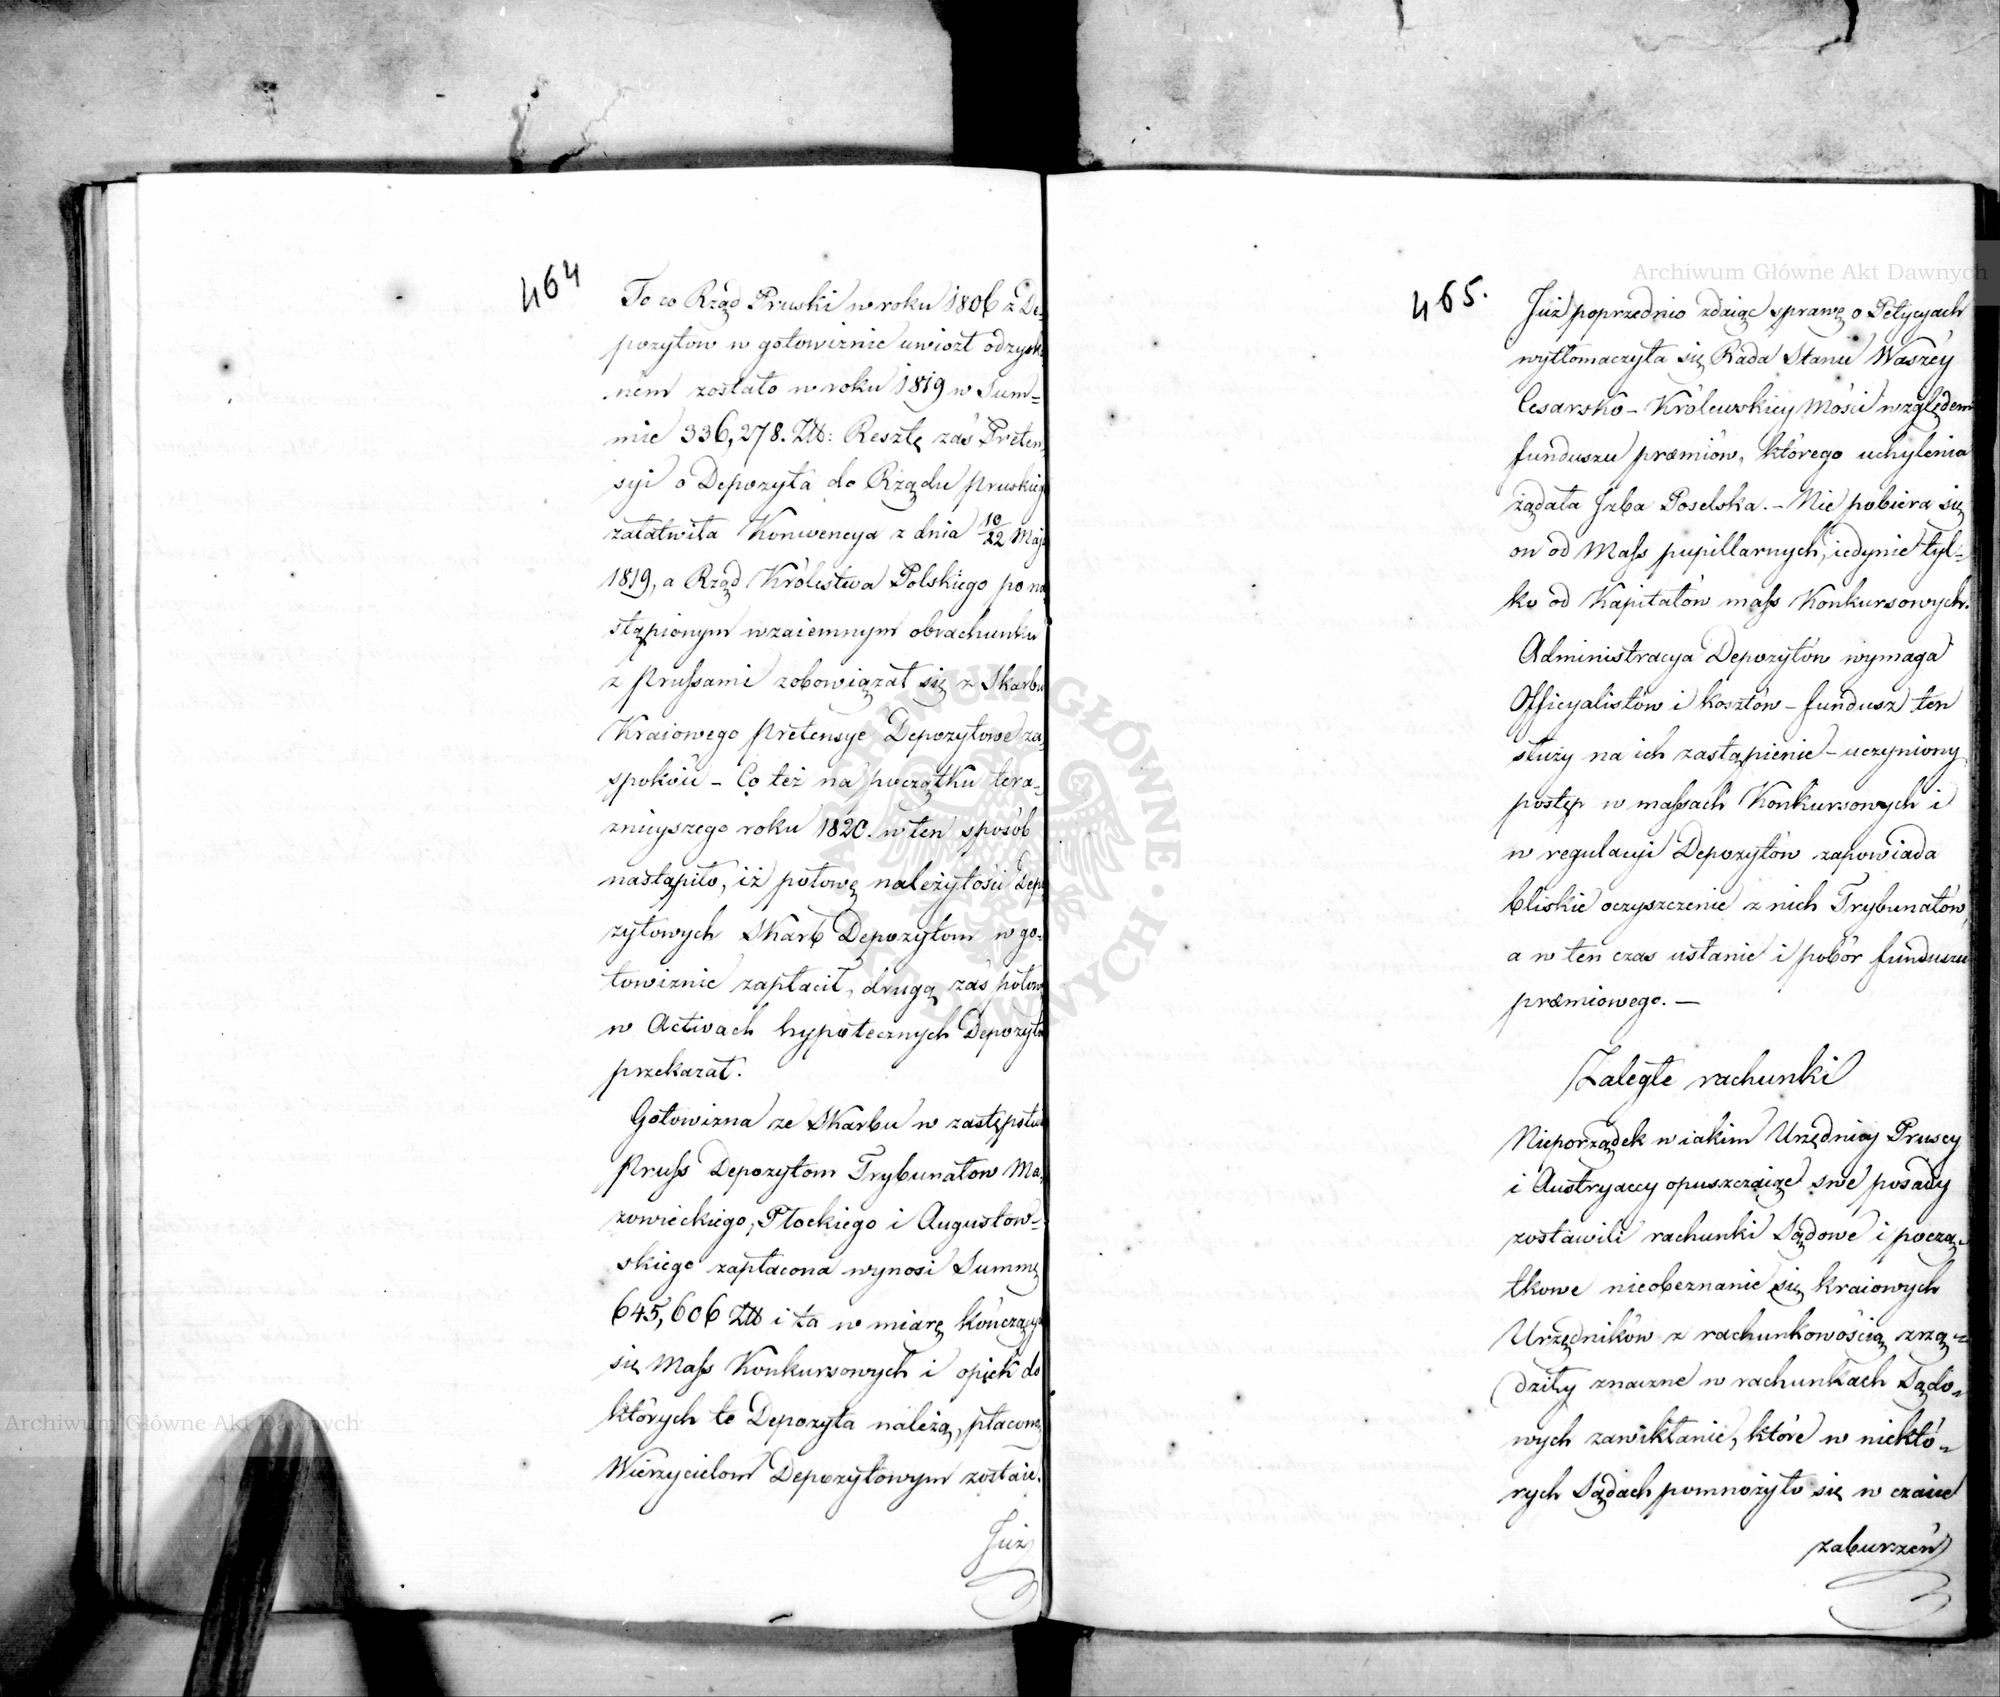 464
To co Rząd Pruski w roku 1806 z De-
pozytow w gotowiznie uwiozł odzyska
nem zostało w roku 1819 w Sum-
mie 336,278. Złt: Resztę zaś Preten
syi o Depozyta do Rządu Pruskiego
załatwiła Konwencya z dnia 10/22 Maja
1819, a Rząd Królestwa Polskiego po na
stąpionym wzaiemnym obrachunku
z Prussami zobowiązał się z Skarbu
Kraiowego Pretensye Depozytowe za-
spokoić – Co też na początku tera-
znieyszego roku 1820. w ten sposób
nastąpiło, iż połowę należytości Depo
zytowych Skarb Depozytom w go-
towiznie zapłacił, drugą zaś połowę
w Activach hypotecznych Depozytom
przekazał.
Gotowizna ze Skarbu w zastępstwie
Pruss Depozytom Trybunałow Ma-
zowieckiego, Płockiego i Augustow-
skiego zapłacona wynosi Summę
645,606 Złt i ta w miarę kończących
się Mass Konkursowych i opiek do
których te Depozyta należą, płaconą
Wierzycielom Depozytowym zostaie.
Już
465.
Już poprzednio zdaiąc sprawę o Petycyach
wytłomaczyła się Rada Stanu Waszéy
Cesarsko-Królewskiey Mości względem
funduszu præmiów, którego uchylenia
żądała Izba Poselska. – Nie pobiera się
on od Mass pupillarnych, iedynie tyl-
ko od Kapitałów mass Konkursowych.
Administracya Depozytów wymaga
Officyalistów i kosztów – fundusz ten
służy na ich zastąpienie – uczyniony
postęp w massach Konkursowych i
w regulacyi Depozytów zapowiada
bliskie oczyszczenie z nich Trybunałów,
a w ten czas ustanie i pobór funduszu
præmiowego. —
Zaległe rachunki
Nieporządek w iakim Urzędnicy Pruscy
i Austryaccy opuszczaiąc swe posady
zostawili rachunki Sądowe i począ-
tkowe nieobeznanie się kraiowych
Urzędników z rachunkowością zrzą-
dziły znaczne w rachunkach Sądo-
wych zawikłanie, które w niektó-
rych Sądach pomnożyło się w czasie
zaburzeń
Archiwum Główne Akt Dawnych
Archiwum Główne Akt Dawnych
ARCHIWUM GŁÓWNE AKT DAWNYCH